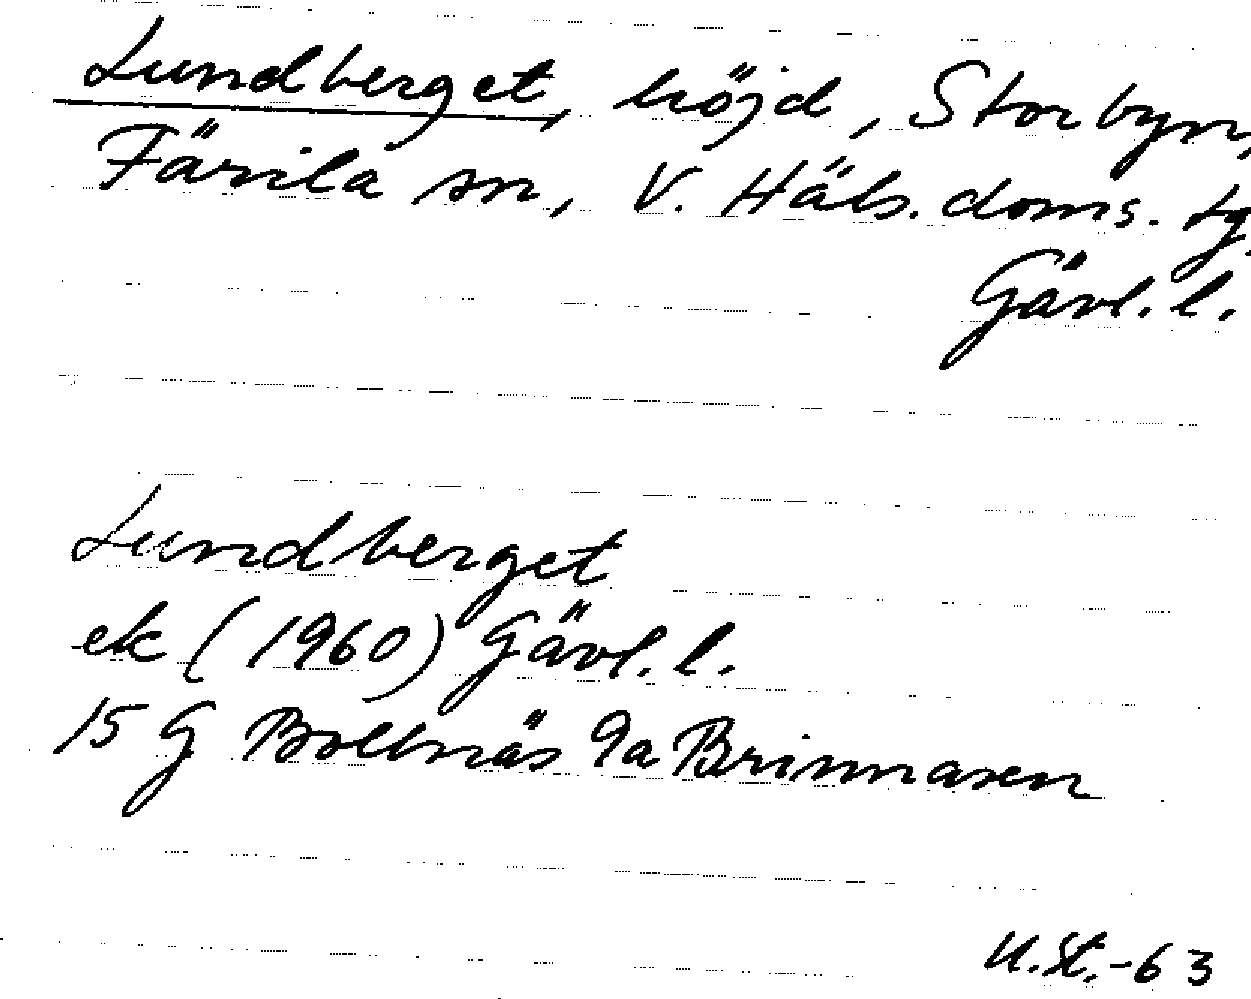 Lundberget, höjd, Storbyn,
Färila sn, V. Häls. doms. tg,
Gävl. l.
Lundberget
ek (1960) Gävl. l.
15 G Bollnäs 9a Brinnaren
U.St.-63